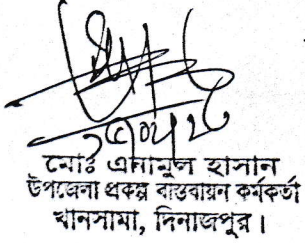 মোঃ এনামুল হাসান
উপজেলা প্রকল্প বাস্তবায়ন কর্মকর্তা
খানসামা, দিনাজপুর।